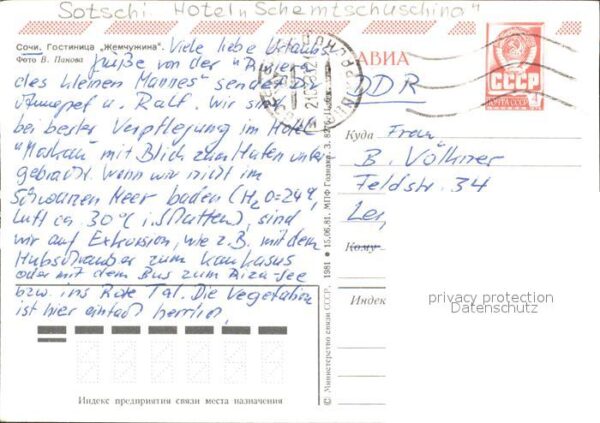 Sotschi Hotel "Schemtschuschina"
Сочи. Гостиница „Жемчужина“.
Фото В. Панова
Viele liebe Urlaubs-
grüße von der "Riviera
des kleinen Mannes" senden Dir
Annegret u. Ralf. Wir sind
bei bester Verpflegung im Hotel
"Moskau" mit Blick zum Hafen unter
gebracht. Wenn wir nicht im
Schwarzen Meer baden (H₂O=24°,
Luft ca. 30°C i. Schatten), sind
wir auf Exkursion, wie z.B. mit dem
Hubschrauber zum Kaukasus
oder mit dem Bus zum Riza-See
bzw. ins Rote Tal. Die Vegetation
ist hier einfach herrlich.
Индекс предприятия связи места назначения
© Министерство связи СССР, 1981 • 15.06.81. МПФ Гознака. З. 82
АВИА
СССР
ПОЧТА СССР
DDR
Куда Frau
B. Völkner
Feldstr. 34
Кому
Индекс
privacy protection
Datenschutz